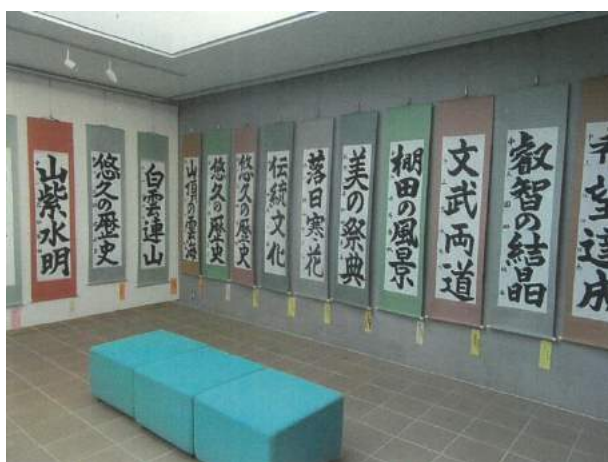 山紫水明
悠久の歴史
白雲連山
山頂の雲海
悠久の歴史
悠久の歴史
伝統文化
落日寒花
美の祭典
棚田の風景
文武両道
叡智の結晶
希望達成